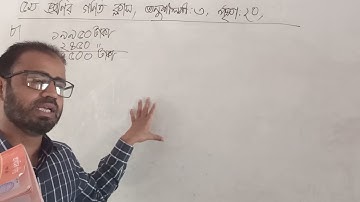 ৫ম শ্রেণির গণিত ক্লাস, অনুশীলনী: ৩, পৃষ্ঠা: ২০,
৮)
১৯৯৫০ টাকা
২৪৫০ "
৫০০ টাকা